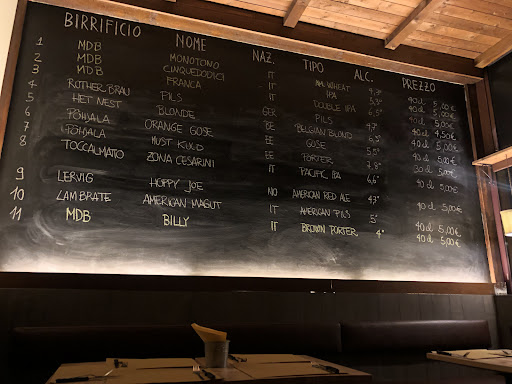 BIRRIFICIO NOME NAZ. TIPO ALC. PREZZO
1 MDB MONOTONO IT AM. WHEAT 40 cl 5,00€
2 MDB CINQUEDODICI IT IPA 40 cl 5,00€
3 MDB FRANCA IT DOUBLE IPA
4 ROTHER BRÄU PILS GER PILS 40 cl 4,50€
5 HET NEST BLONDE BE BELGIAN BLOND 40 cl 5,00€
6 PÕHJALA ORANGE GOSE EE GOSE 40 cl 5,00€
7 PÕHJALA MUST KULD EE PORTER
8 TOCCALMATTO ZONA CESARINI IT PACIFIC IPA 6,6° 40 cl 5,00€
9 LERVIG HOPPY JOE NO AMERICAN RED ALE 4,7° 40 cl 5,00€
10 LAMBRATE AMERICAN MAGUT IT AMERICAN PILS 5° 40 cl 5,00€
11 MDB BILLY IT BROWN PORTER 4° 40 cl 5,00€